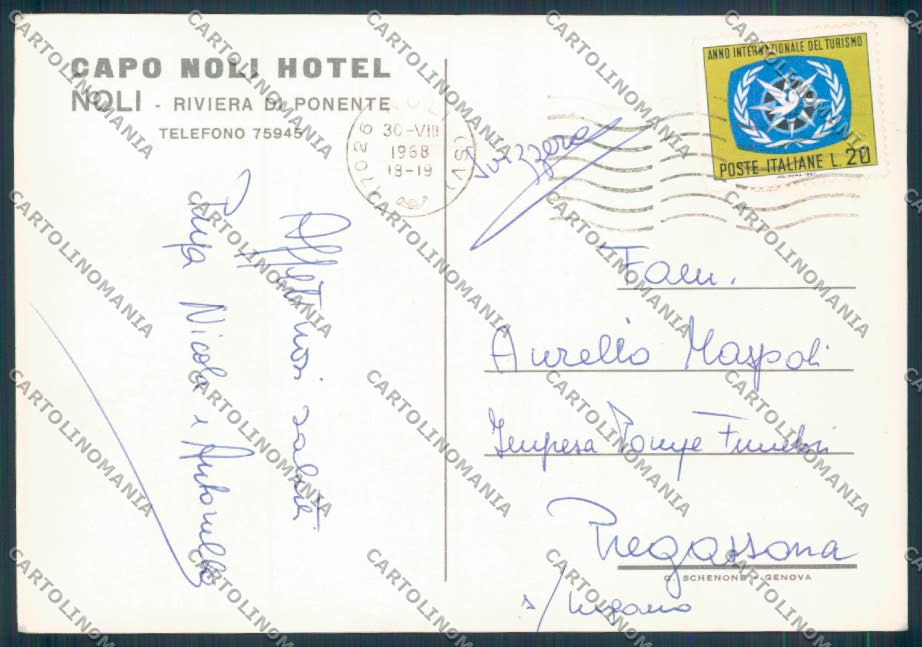 CAPO NOLI HOTEL
NOLI - RIVIERA DI PONENTE
TELEFONO 75945
17026 NOLI (SV)
30-VIII
1968
18-19
ANNO INTERNAZIONALE DEL TURISMO
POSTE ITALIANE L. 20
Svizzera
Affettuosi saluti
Nicola e Antonella
Fam.
Aurelio Maspoli
Impresa Pompe Funebri
Pregassona
C. SCHENONE - GENOVA
s/ Lugano
CARTOLINOMANIA